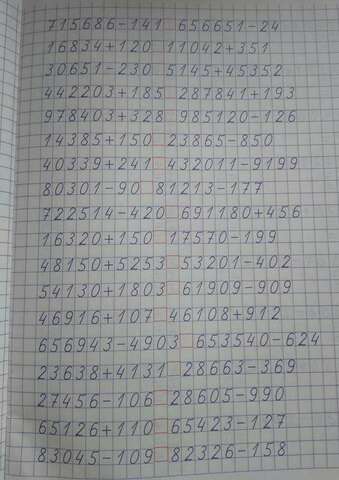 715686-141 □ 656651-24
16834+120 □ 11042+351
30651-230 □ 5145+45352
442203+185 □ 287841+193
978403+328 □ 985120-126
14385+150 □ 23865-850
40339+241 □ 432011-9199
80301-90 □ 81213-177
722514-420 □ 691180+456
16320+150 □ 17570-199
48150+5253 □ 53201-402
54130+1803 □ 61909-909
46916+107 □ 46108+912
656943-4903 □ 653540-624
23638+4131 □ 28663-369
27456-106 □ 28605-990
65126+110 □ 65423-127
83045-109 □ 82326-158